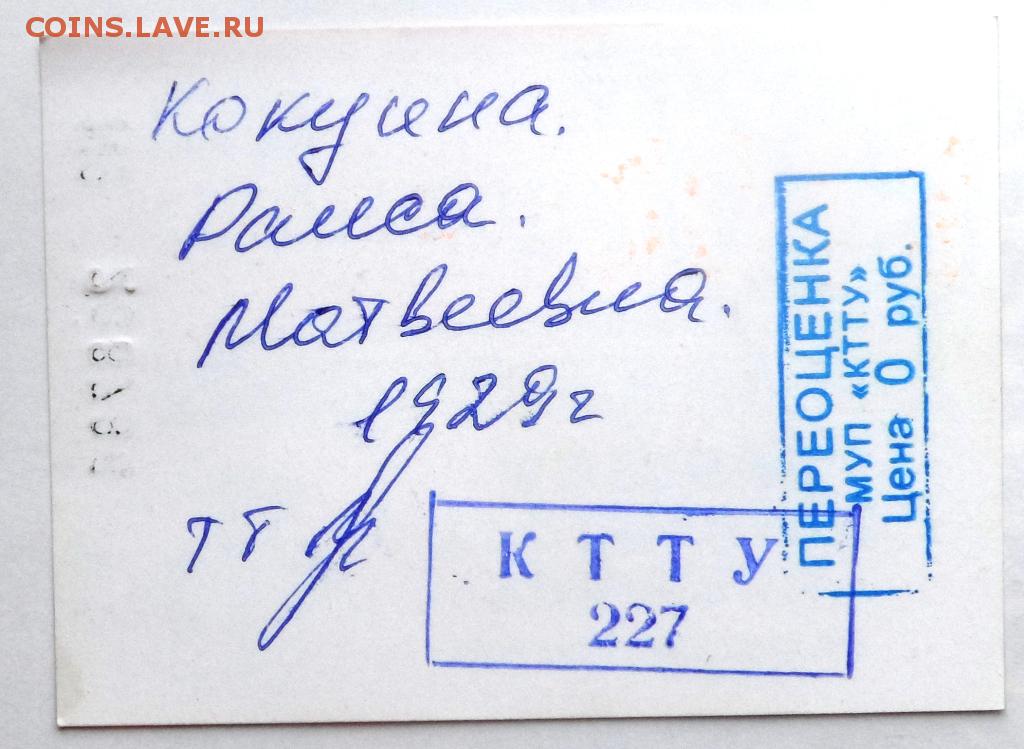 COINS.LAVE.RU
Раиса.
Матвеевна.
1929г
ТТ
К Т Т У
227
ПЕРЕОЦЕНКА
МУП «КТТУ»
Цена 0 руб.